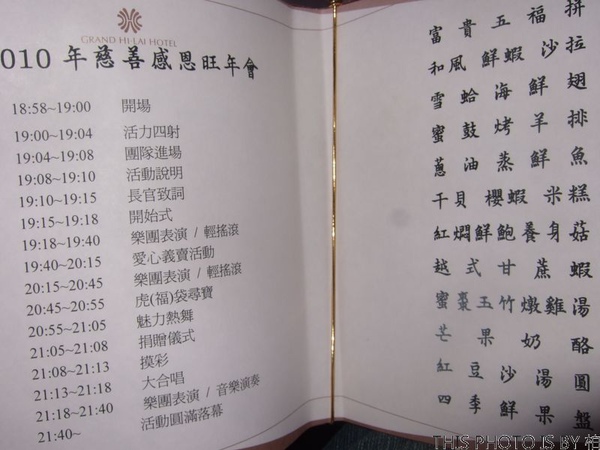 GRAND HI-LAI HOTEL
010 年慈善感恩旺年會
18:58~19:00 開場
19:00~19:04 活力四射
19:04~19:08 團隊進場
19:08~19:10 活動說明
19:10~19:15 長官致詞
19:15~19:18 開始式
19:18~19:40 樂團表演 / 輕搖滾
19:40~20:15 愛心義賣活動
20:15~20:45 樂團表演 / 輕搖滾
20:45~20:55 虎(福)袋尋寶
20:55~21:05 魅力熱舞
21:05~21:08 捐贈儀式
21:08~21:13 摸彩
21:13~21:18 大合唱
21:18~21:40 樂團表演 / 音樂演奏
21:40~ 活動圓滿落幕
富貴五福拼
和風鮮蝦沙拉
雪蛤海鮮翅
蜜鼓烤羊排
蔥油蒸鮮魚
干貝櫻蝦米糕
紅燜鮮鮑養身菇
越式甘蔗蝦
蜜棗玉竹燉雞湯
芒果奶酪
紅豆沙湯圓
四季鮮果盤
THIS PHOTO IS BY 柏